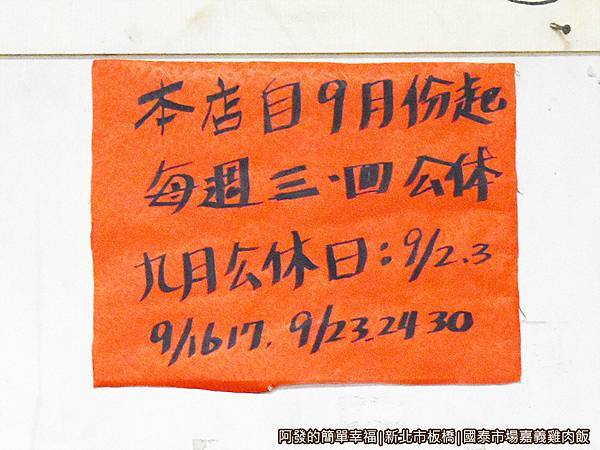 本店自9月份起
每週三、四公休
九月公休日:9/2.3
9/16 17. 9/23.24 30
阿發的簡單幸福|新北市板橋|國泰市場嘉義雞肉飯